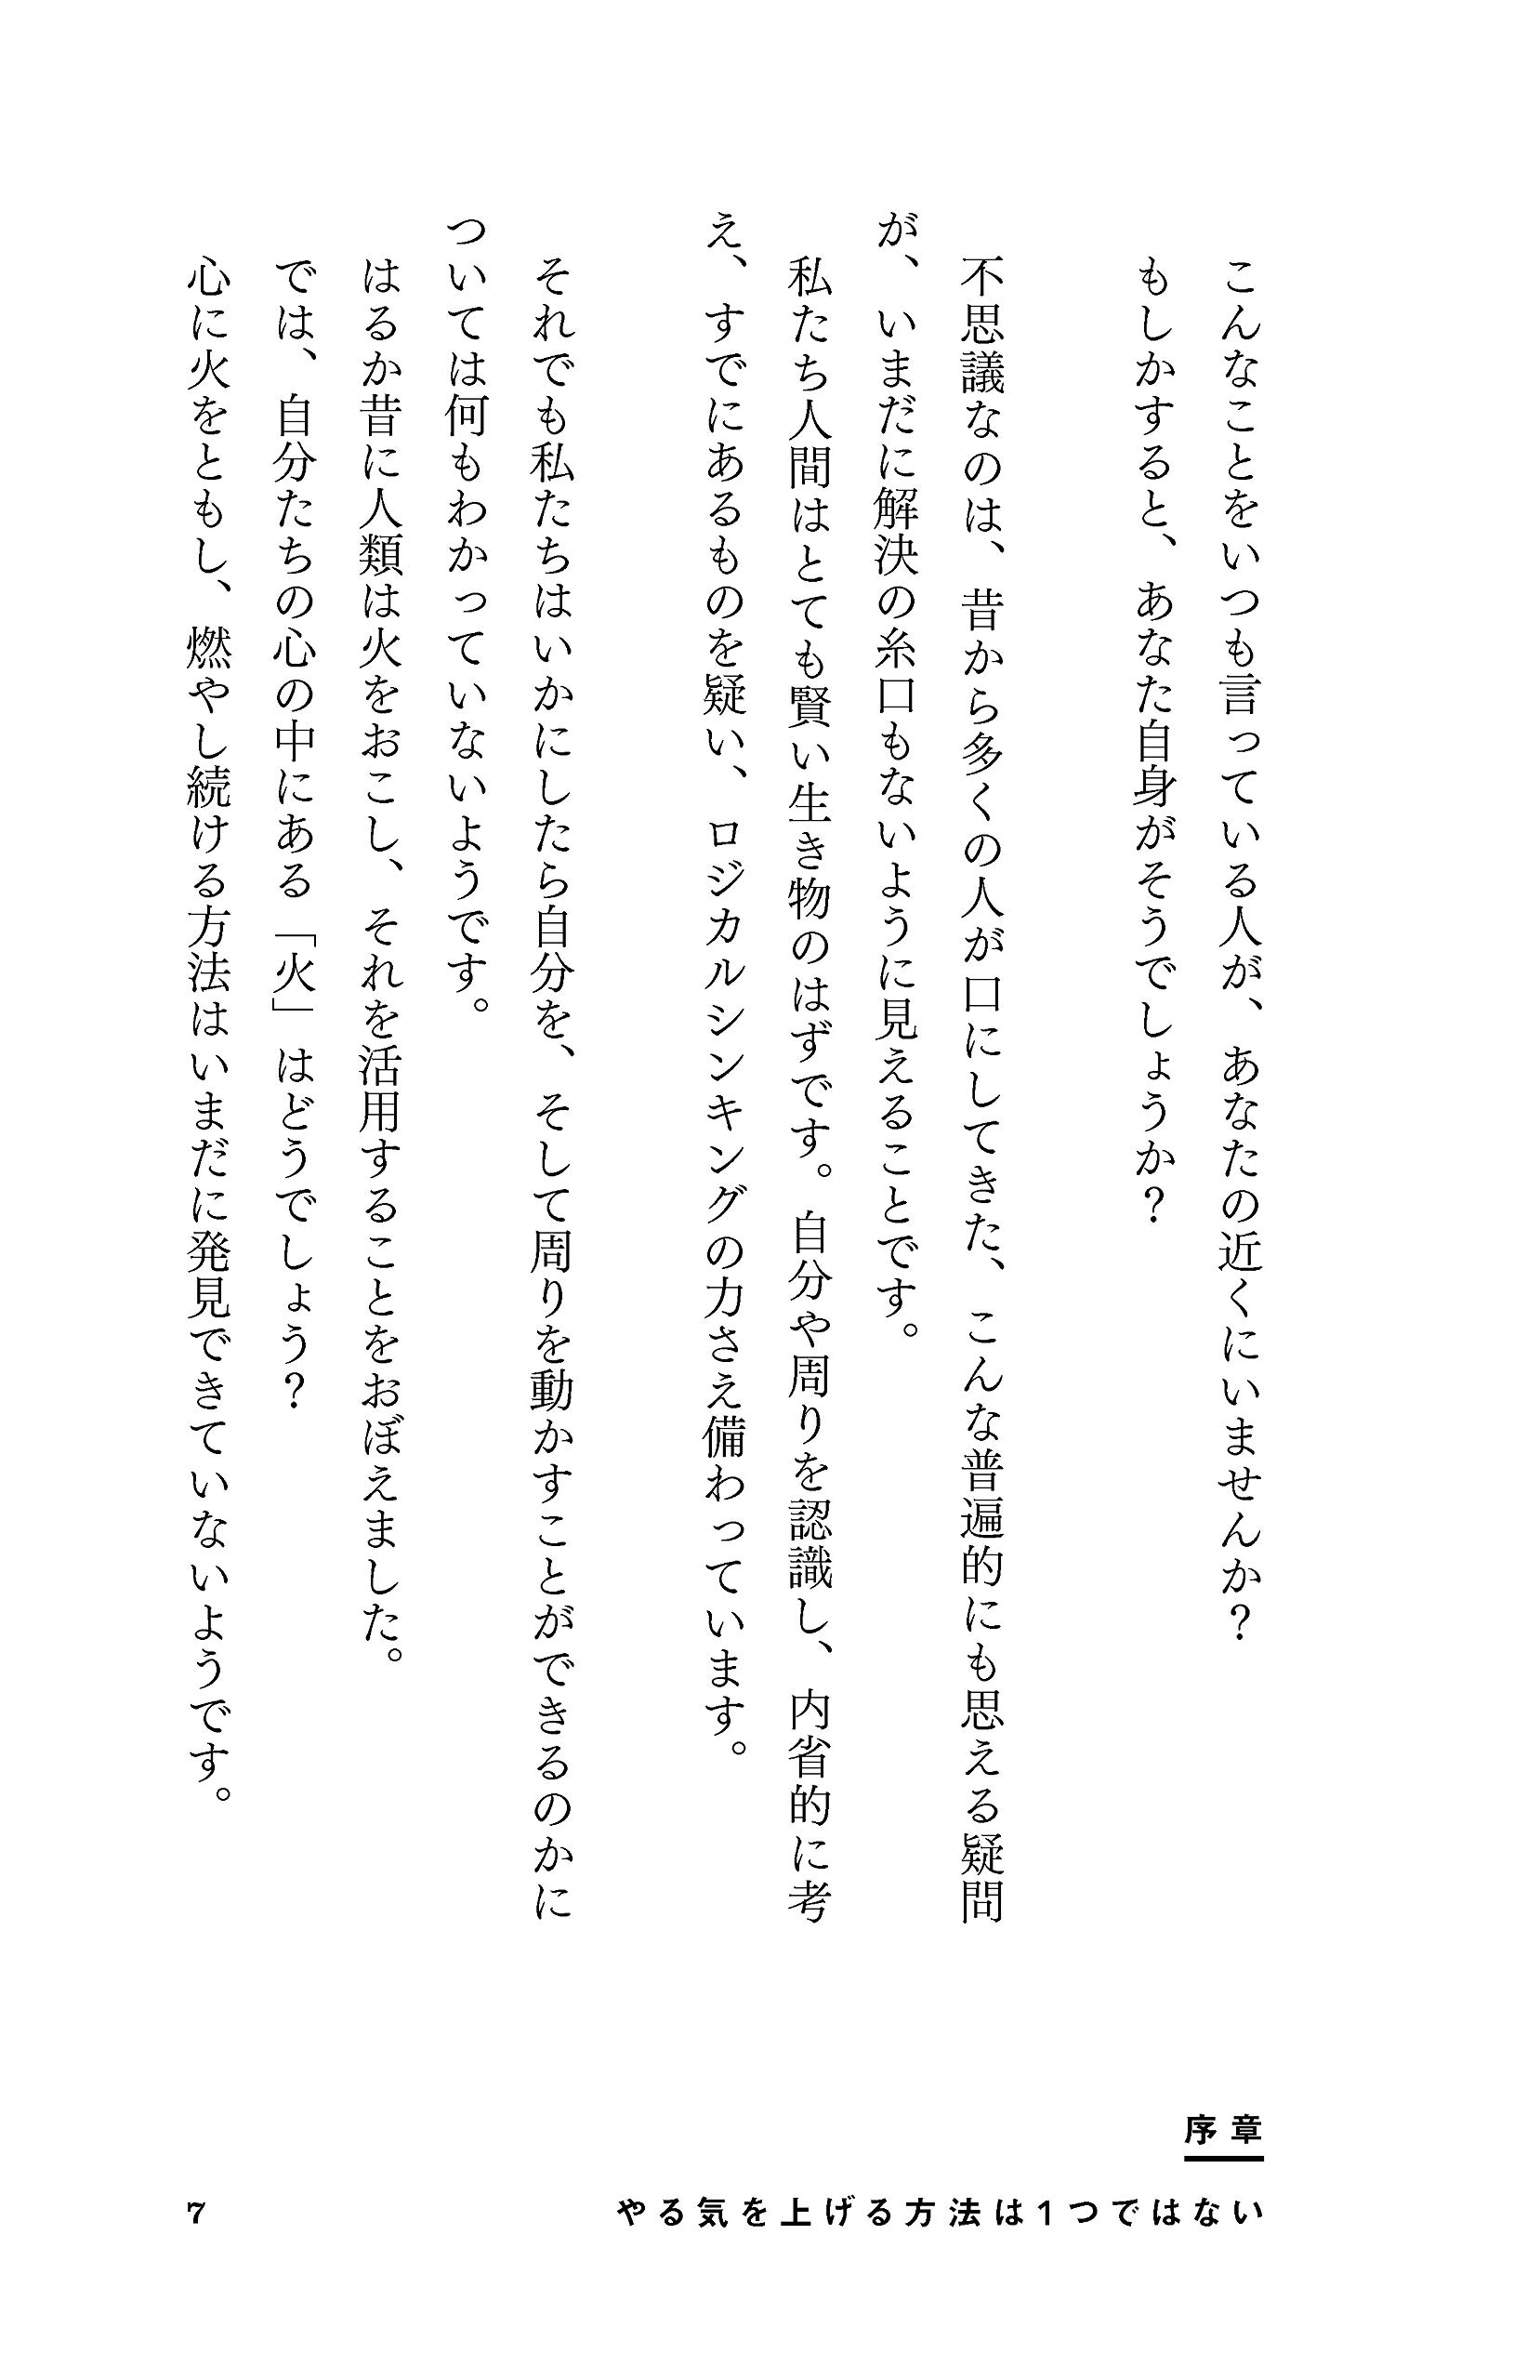 こんなことをいつも言っている人が、あなたの近くにいませんか？
もしかすると、あなた自身がそうでしょうか？
不思議なのは、昔から多くの人が口にしてきた、こんな普遍的にも思える疑問
が、いまだに解決の糸口もないように見えることです。
私たち人間はとても賢い生き物のはずです。自分や周りを認識し、内省的に考
え、すでにあるものを疑い、ロジカルシンキングの力さえ備わっています。
それでも私たちはいかにしたら自分を、そして周りを動かすことができるのかに
ついては何もわかっていないようです。
はるか昔に人類は火をおこし、それを活用することをおぼえました。
では、自分たちの心の中にある「火」はどうでしょう？
心に火をともし、燃やし続ける方法はいまだに発見できていないようです。
序章
やる気を上げる方法は1つではない
7